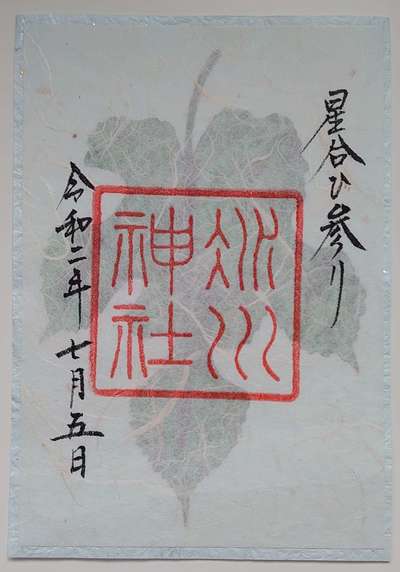 星合ひ参り
氷川
神社
令和二年 七月五日